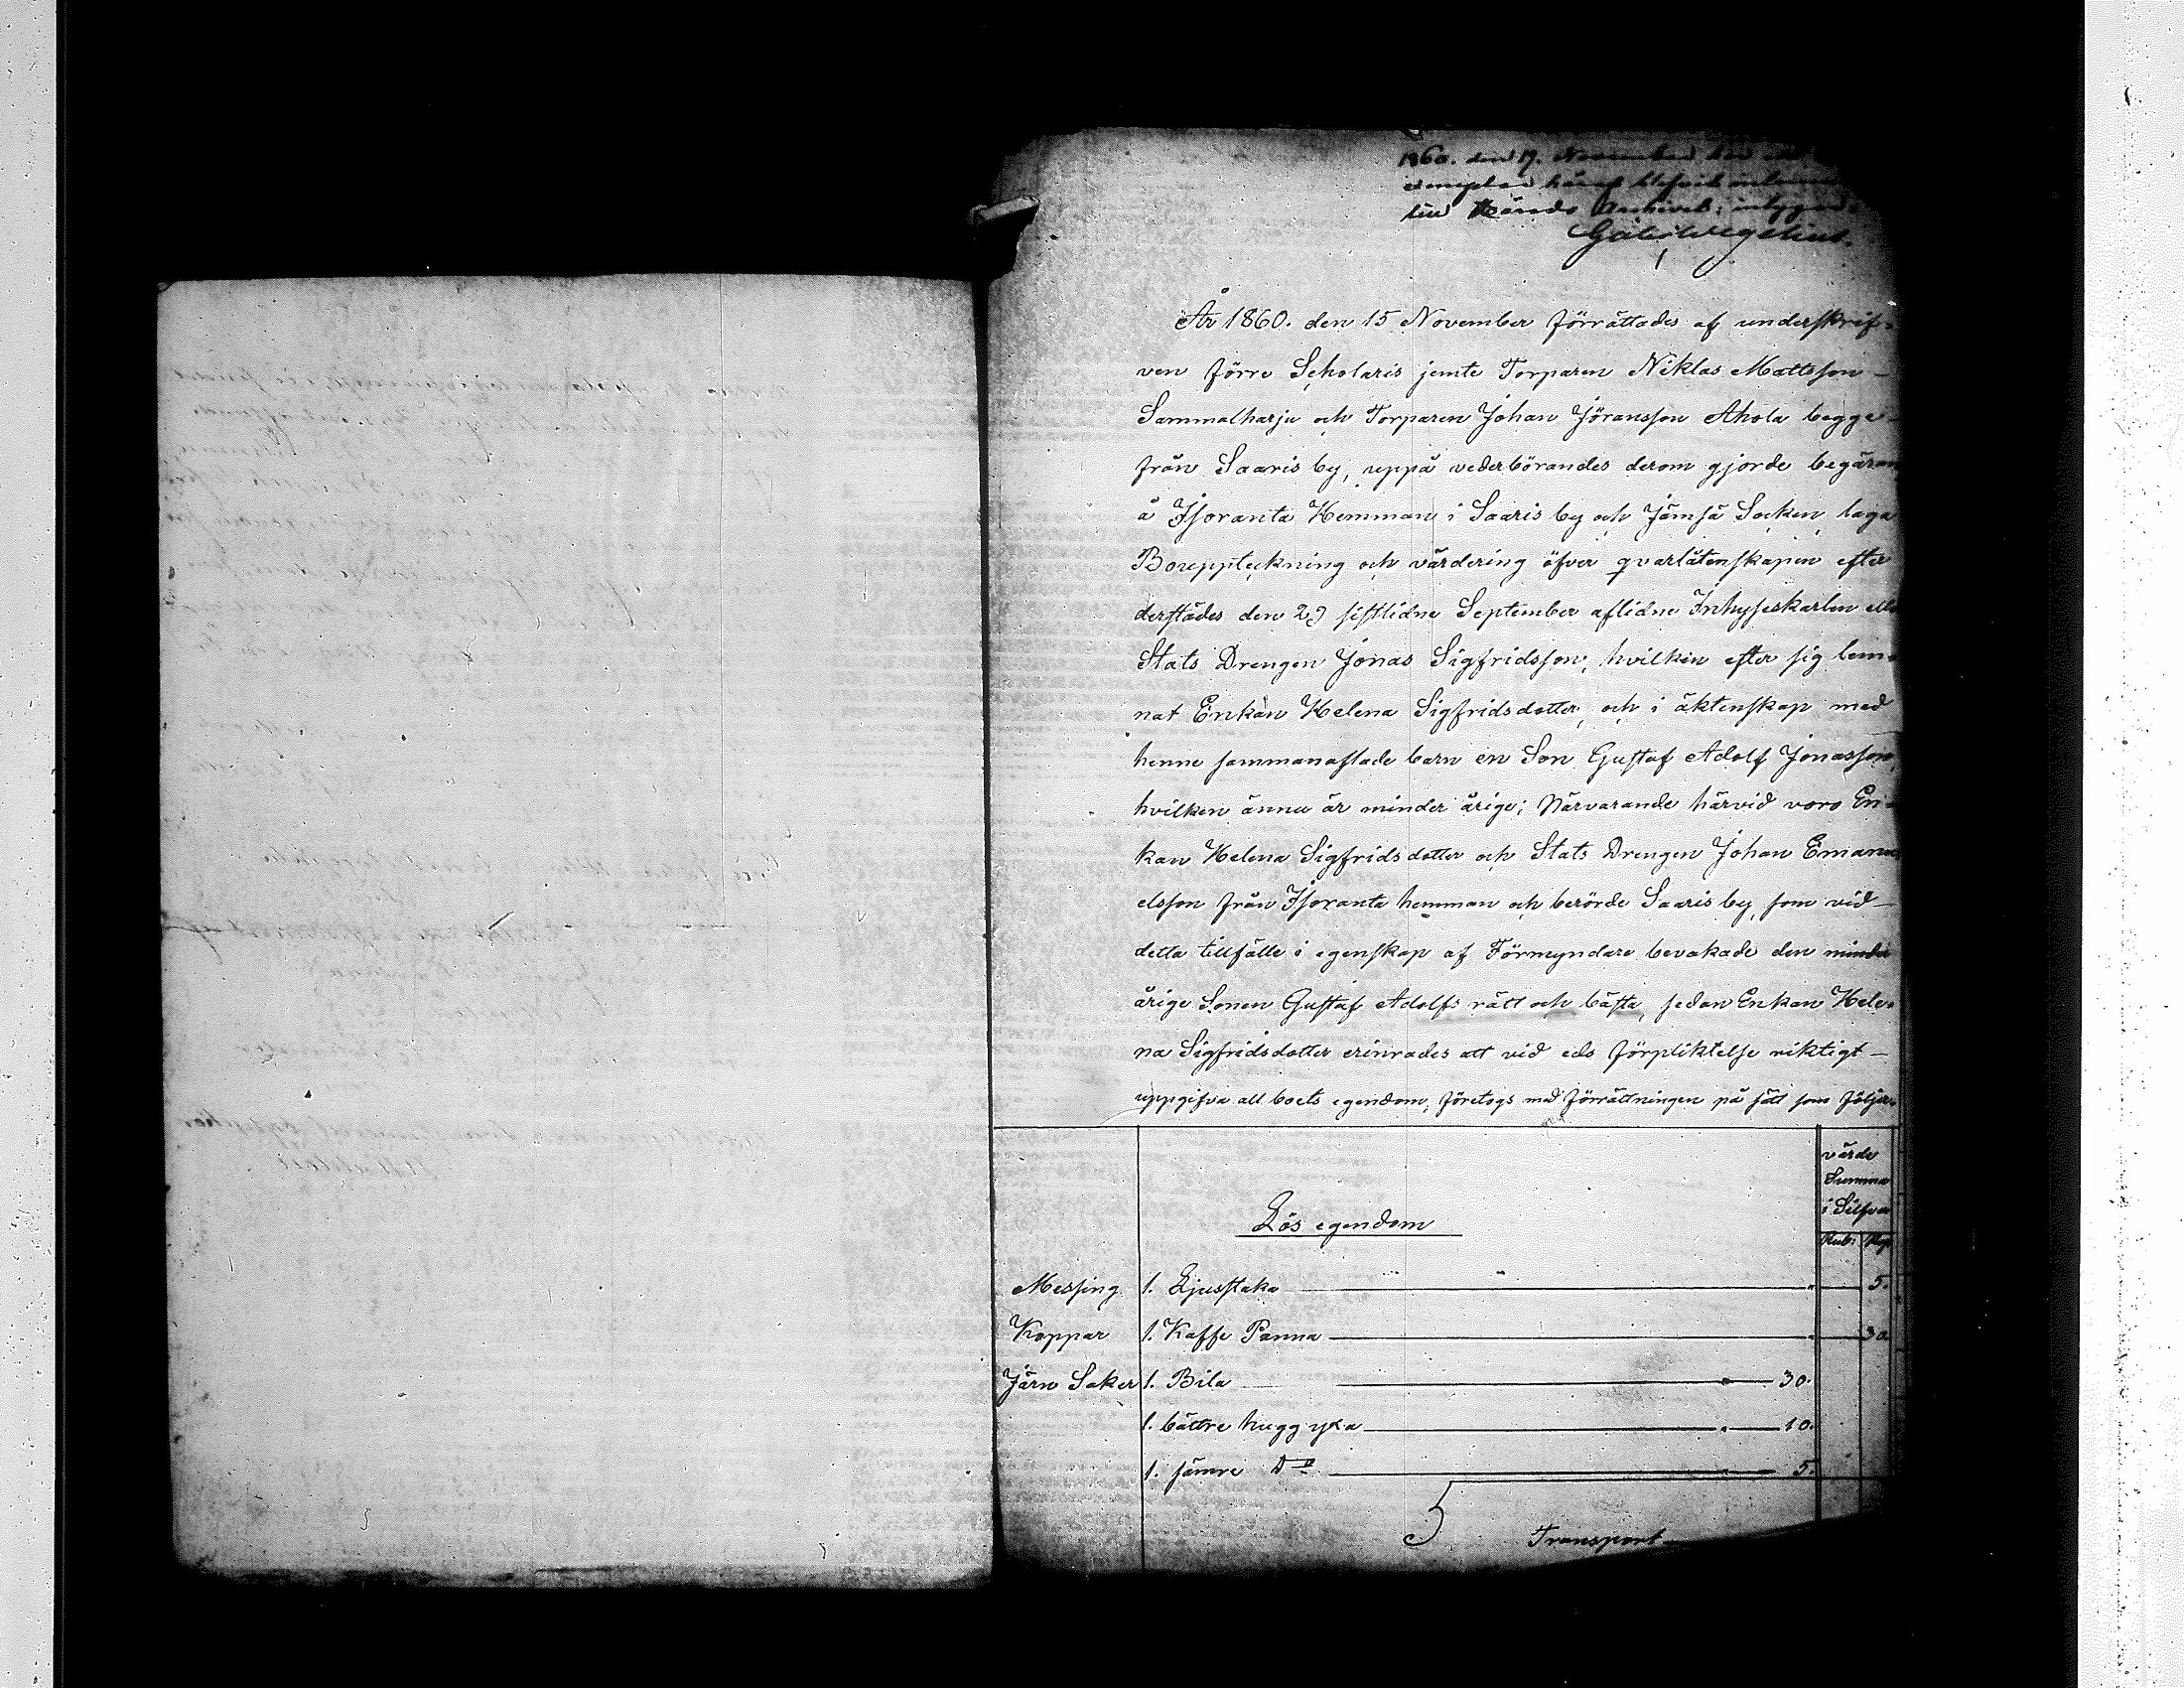 1860. den 19. November
exemplar häraf blifvit
till Härads Archivet; intygar
År 1860. den 15 November förrättades af underskrif-
ven förre Scholaris jemte Torparen Niklas Mattsson
Sammalharju och Torparen Johan Jöransson Ahola begge
från Saaris by, uppå vederbörandes derom gjorde begäran
å Isoranta Hemman i Saaris by och Jämsä Socken, laga
Bouppteckning och värdering öfver qvarlåtenskapen efter
derstädes den 29 sistlidne September aflidne Inhyseskarlen
Stats Drengen Jonas Sigfridsson, hvilken efter sig lem-
nat Enkan Helena Sigfridsdotter, och i äktenskap med
henne sammanaflade barn en Son Gustaf Adolf Jonasson,
hvilken ännu är minder årige; Närvarande härvid voro En-
kan Helena Sigfrids dotter och Stats Drengen Johan Emanu
elsson från Isoranta hemman och berörde Saaris by, som vid
detta tillfälle i egenskap af Förmyndare bevakade den minder
årige Sonen Gustaf Adolfs rätt och bästa, sedan Enkan Hele-
na Sigfridsdotter erinrades att vid eds förpliktelse riktigt
uppgifva all boets egendom, företogs med förrättningen på sätt som följer.
värde
Summa
i Silfver
Lös egendom
Rub: Kop
Messing 1. Ljusstaka " 5.
Koppar 1. Kaffe Panna " 30
Järn Saker 1. Bila " 30.
1. bättre hugg yxa " 10.
1. sämre Do " 5.
Transport